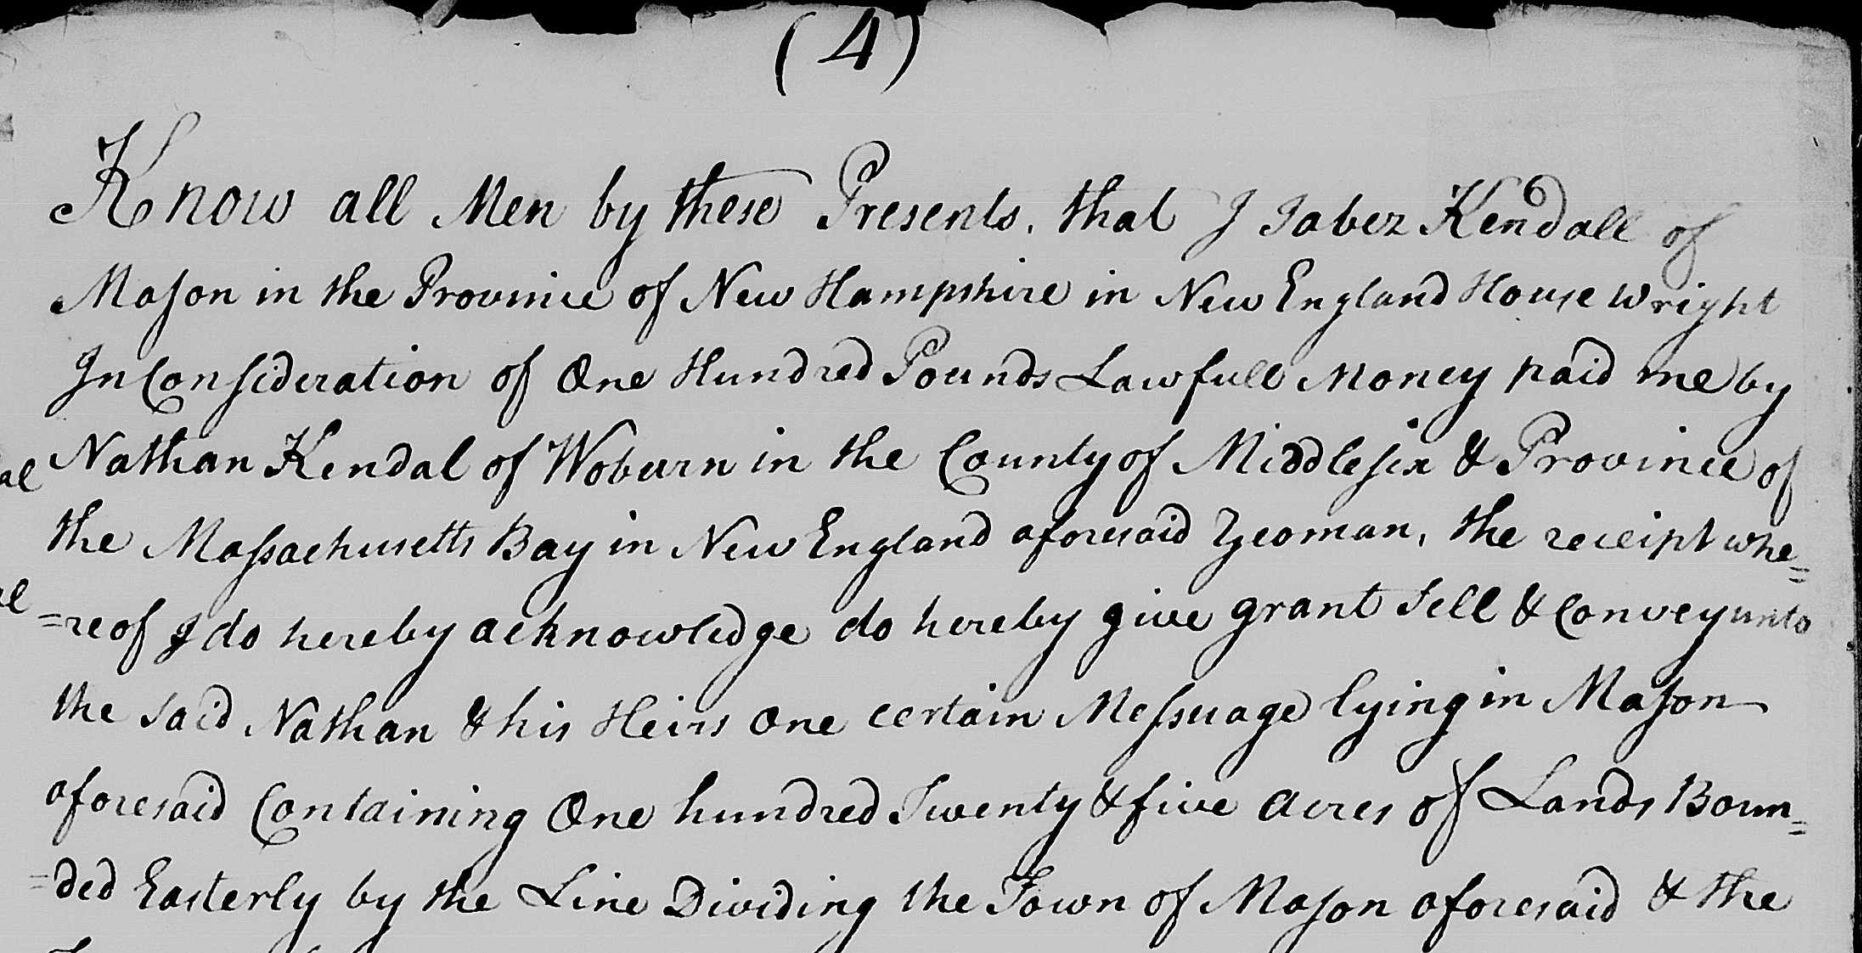 (4)
Know all Men by these Presents, that I Jabez Kendall of
Mason in the Province of New Hampshire in New England House wright
In Consideration of One Hundred Pounds Lawfull Money paid me by
Nathan Kendal of Woburn in the County of Middlesix & Province of
the Massachusetts Bay in New England aforesaid Yeoman, the receipt whe=
=reof I do hereby acknowledge do hereby give grant Sell & Convey unto
the said Nathan & his Heirs One certain Messuage lying in Mason
aforesaid Containing One hundred Twenty & five Acres of Lands Boun=
=ded Easterly by the Line Dividing the Town of Mason aforesaid & the